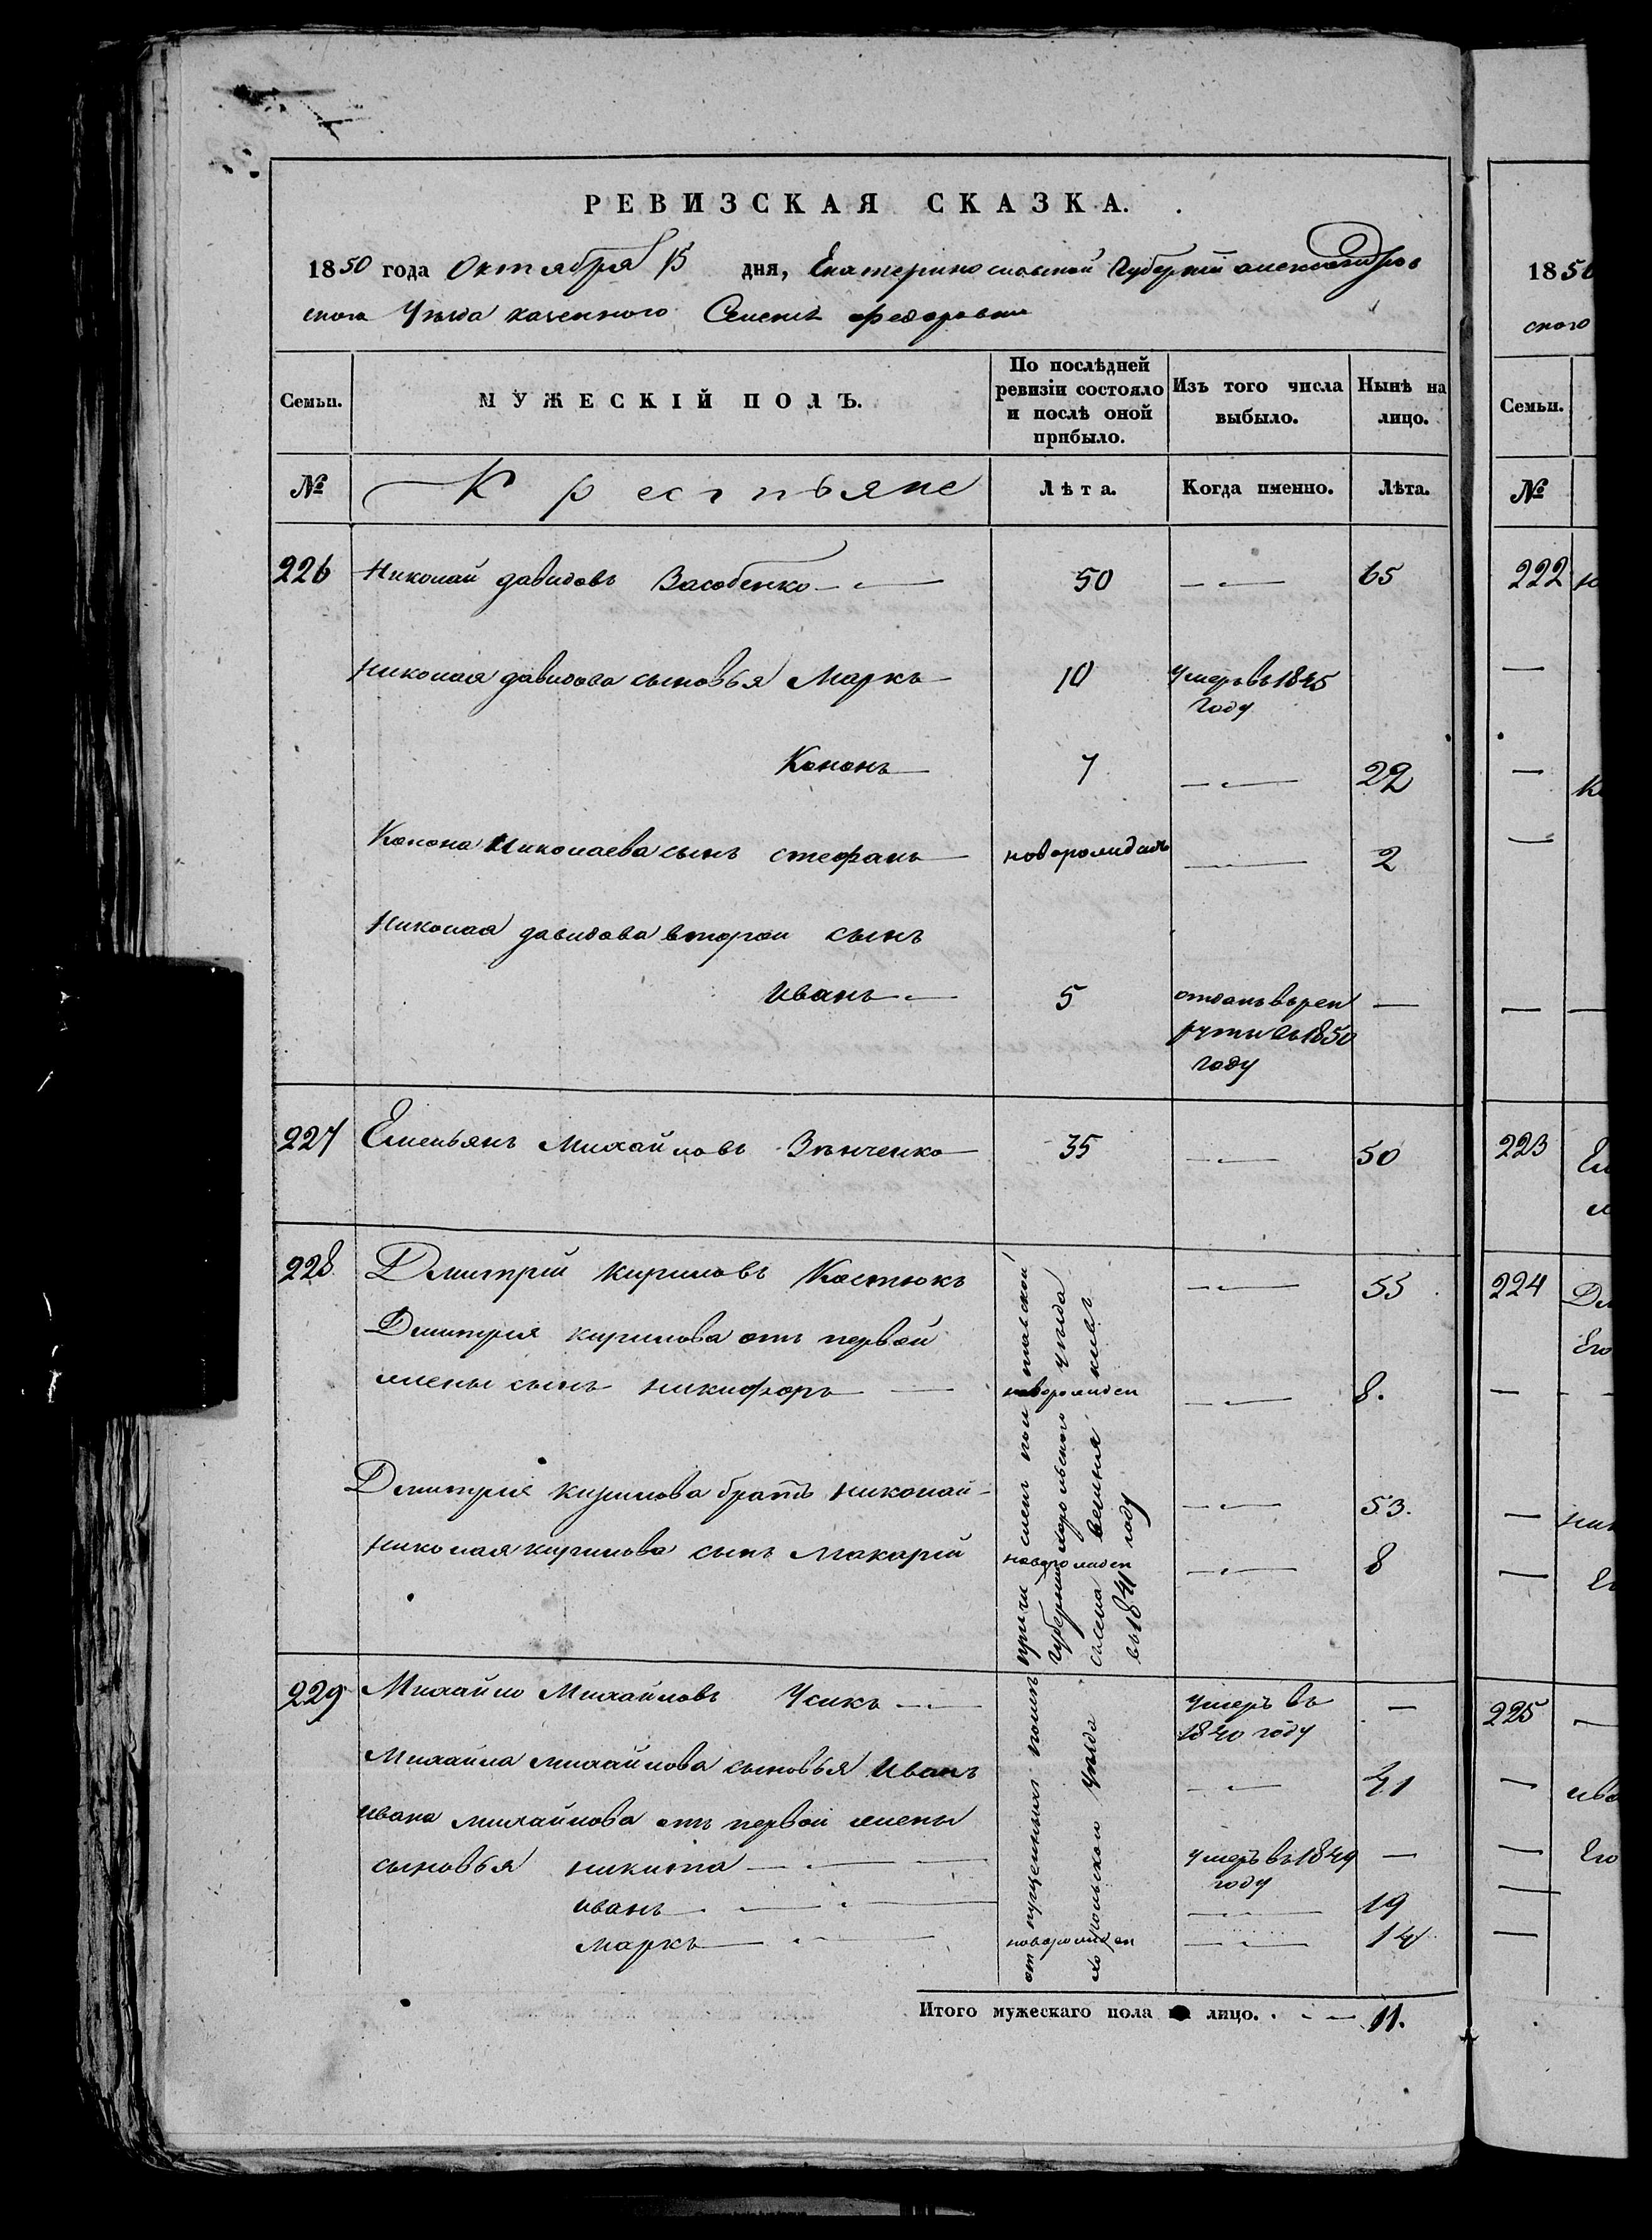 РЕВИЗСКАЯ СКАЗКА.
1850 года Октября 15 дня, Екатеринославской Губерніи александров
ского Уезда казенного Селенія федоровки
Семьи.
МУЖЕСКІЙ ПОЛЪ.
По послѣдней ревизіи состояло и послѣ оной прибыло.
Изъ того числа выбыло.
Нынѣ на лицо.
№
Крестьяне
Лѣта.
Когда именно.
Лѣта.
226 Николай давидовъ Засобенко 50 — 65
Николая давидова сыновья Маркъ 10 Умеръ въ 1845
году
Кононъ 7 — 22
Конона Николаева сынъ стефанъ новорожденъ — 2
Николая давидова второй сынъ
Иванъ 5 отданъ въ рек —
руты въ 1850
году
227 Емельянъ Михайловъ Зѣнченко 35 — 50
228 Дмитрій Кириловъ Костюкъ — 55
Дмитрия кирилова отъ первой
жены сынъ никифоръ новорожден — 8.
Дмитрия кирилова братъ николай — 53.
николая кирилова сынъ макарій новорожден — 8
причислен полтавской
губернии хорольского уезда
въ 1841 году
229 Михайло Михайловъ Усикъ умеръ въ —
1840 году
Михайла михайлова сыновья Иванъ — 41
ивана михайлова отъ первой жены
сыновья никита умеръ въ 1849 —
году
иванъ — 19
маркъ новорожден — 14
хорольского уезда
Итого мужескаго пола на лицо. 11.
1850
ского
Семьи.
№
222
223
224
225